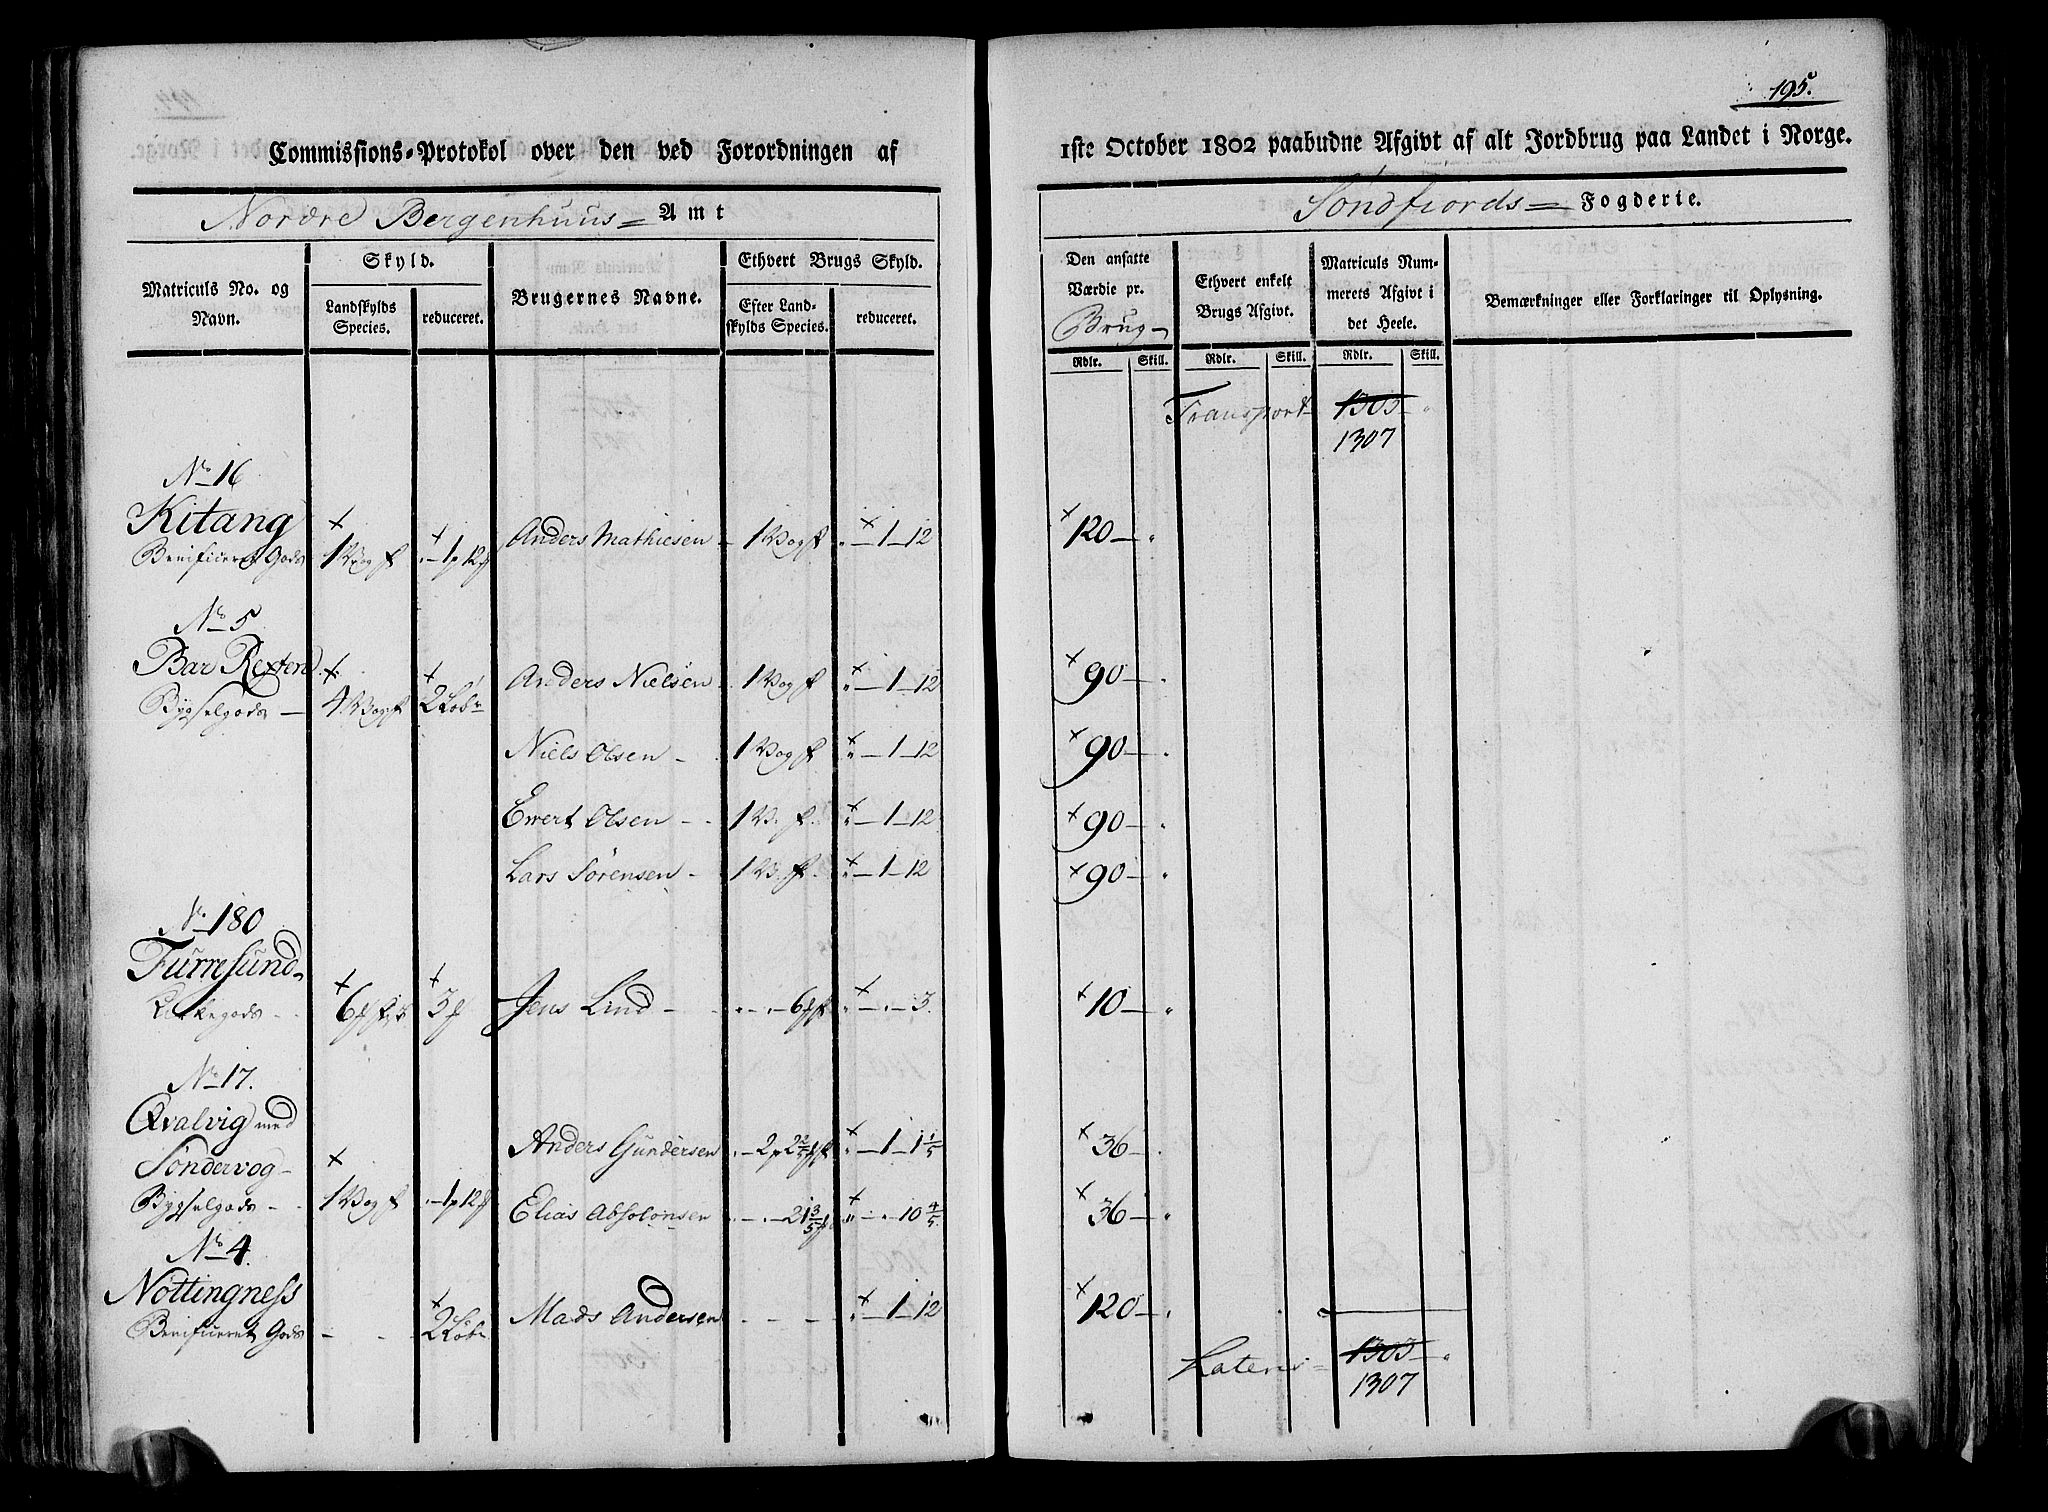 195.
Commissions-Protokol over den ved Forordningen af
1ste October 1802 paabudne Afgivt af alt Jordbrug paa Landet i Norge.
Nordre Bergenhuus= Amt
Söndfiords= Fogderie.
Matriculs No. og Navn.
Skyld.
Landskylds Species.
reduceret.
Brugernes Navne.
Ethvert Brugs Skyld.
Efter Landskylds Species.
reduceret.
Den ansatte Værdie pr. Brug
Ethvert enkelt Brugs Afgivt.
Matriculs Nummerets Afgivt i det Heele.
Bemærkninger eller Forklaringer til Oplysning.
Rdlr. Skill. Rdlr. Skill. Rdlr. Skill.
Transport 1303
1307
No 16
Kitang
Benificeret Gods 1 Vog f - 1 p 12 Anders Mathiesen 1 Vog f - 1 - 12 120
No 5
Bar Rexten
Bygselgods 4 Vog f 2 Löb Anders Nielsen 1 Vog f - 1 - 12 90
Niels Olsen 1 Vog f - 1 - 12 90
Ewert Olsen 1 V. f - 1 - 12 90
Lars Sörensen 1 V. f - 1 - 12 90
No 180
Furresund
Kirkegods 6 3 Jens Lind 6 3. 10
No 17.
Qvalvig med
Söndervog
Bygselgods 1 Vog f - 1 p 12 Anders Gundersen 2 p 2 2/5 - 1 - 1 1/5 36
Elias Absolonsen 21 3/5 10 4/5 36
No 4.
Nöttingness
Benificeret Gods 2 Löb Mads Andersen - 1 - 12 120
Lateris 1303
1307